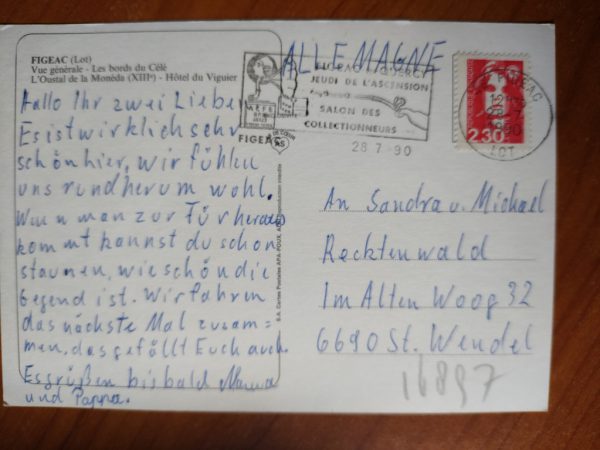 FIGEAC (Lot)
Vue générale - Les bords du Célé
L'Oustal de la Monéda (XIIIᵉ) - Hôtel du Viguier
Hallo Ihr zwei Lieben
Es ist wirklich sehr
schön hier, wir fühlen
uns rundherum wohl.
Wenn man zur Tür heraus
kommt kannst du schon
staunen, wie schön die
Gegend ist. Wir fahren
das nächste Mal zusam=
men, das gefällt Euch auch.
Es grüßen bis bald Mama
und Pappa.
ALLEMAGNE
FIGEAC EN QUERCY
JEUDI DE L'ASCENSION
SALON DES
COLLECTIONNEURS
FIGEAC
28.7.90
FIGEAC
LOT
2,30
An Sandra u. Michael
Recktenwald
Im Alten Woog 32
6690 St. Wendel
16897